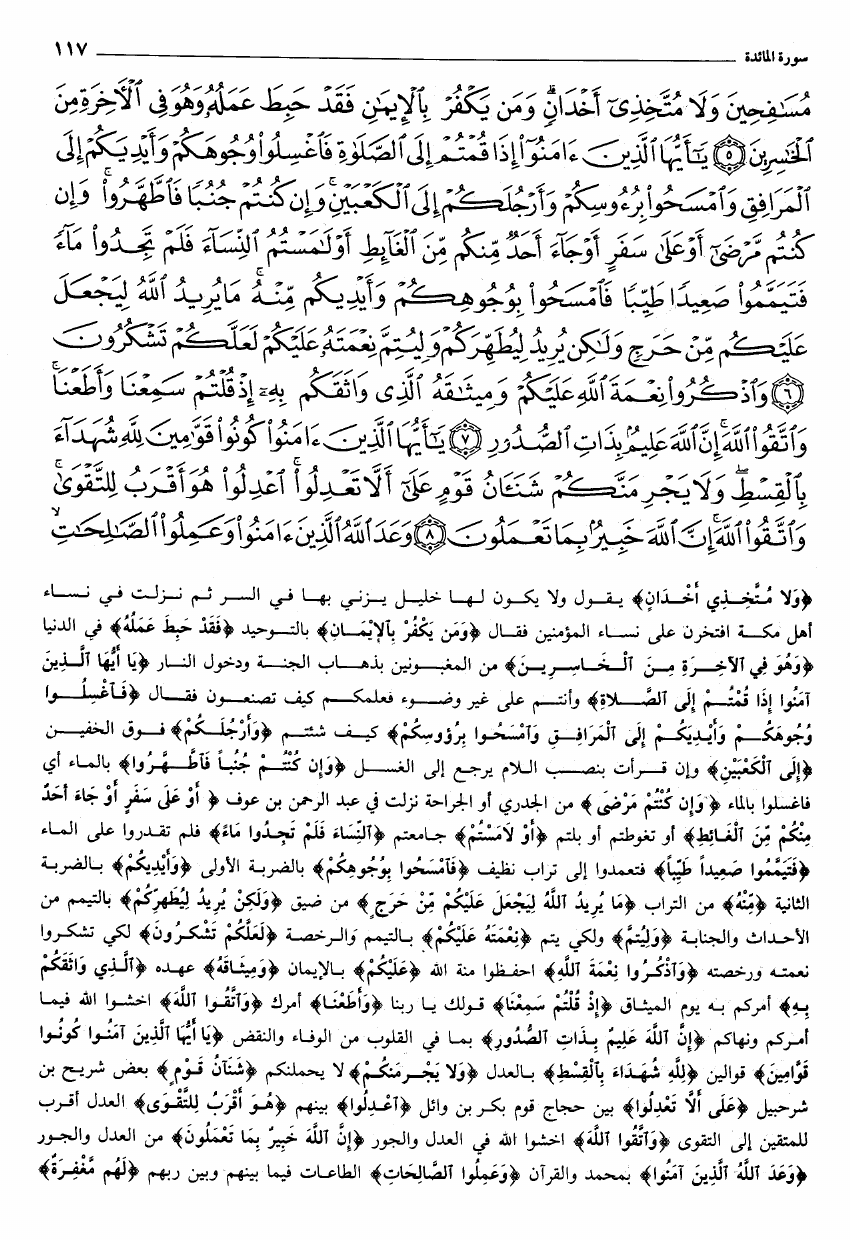 سورة المائدة ١١٧
مُسَٰفِحِينَ وَلَا مُتَّخِذِىٓ أَخْدَانٍۗ وَمَن يَكْفُرْ بِٱلْإِيمَٰنِ فَقَدْ حَبِطَ عَمَلُهُۥ وَهُوَ فِى ٱلْأَخِرَةِ مِنَ
ٱلْخَٰسِرِينَ ٥ يَٰٓأَيُّهَا ٱلَّذِينَ ءَامَنُوٓا۟ إِذَا قُمْتُمْ إِلَى ٱلصَّلَوٰةِ فَٱغْسِلُوا۟ وُجُوهَكُمْ وَأَيْدِيَكُمْ إِلَى
ٱلْمَرَافِقِ وَٱمْسَحُوا۟ بِرُءُوسِكُمْ وَأَرْجُلَكُمْ إِلَى ٱلْكَعْبَيْنِۚ وَإِن كُنتُمْ جُنُبًا فَٱطَّهَّرُوا۟ۚ وَإِن
كُنتُم مَّرْضَىٰٓ أَوْ عَلَىٰ سَفَرٍ أَوْ جَآءَ أَحَدٌ مِّنكُم مِّنَ ٱلْغَآئِطِ أَوْ لَٰمَسْتُمُ ٱلنِّسَآءَ فَلَمْ تَجِدُوا۟ مَآءً
فَتَيَمَّمُوا۟ صَعِيدًا طَيِّبًا فَٱمْسَحُوا۟ بِوُجُوهِكُمْ وَأَيْدِيكُم مِّنْهُۚ مَا يُرِيدُ ٱللَّهُ لِيَجْعَلَ
عَلَيْكُم مِّنْ حَرَجٍ وَلَٰكِن يُرِيدُ لِيُطَهِّرَكُمْ وَلِيُتِمَّ نِعْمَتَهُۥ عَلَيْكُمْ لَعَلَّكُمْ تَشْكُرُونَ
٦ وَٱذْكُرُوا۟ نِعْمَةَ ٱللَّهِ عَلَيْكُمْ وَمِيثَٰقَهُ ٱلَّذِى وَاثَقَكُم بِهِۦٓ إِذْ قُلْتُمْ سَمِعْنَا وَأَطَعْنَاۖ
وَٱتَّقُوا۟ ٱللَّهَۚ إِنَّ ٱللَّهَ عَلِيمٌۢ بِذَاتِ ٱلصُّدُورِ ٧ يَٰٓأَيُّهَا ٱلَّذِينَ ءَامَنُوا۟ كُونُوا۟ قَوَّٰمِينَ لِلَّهِ شُهَدَآءَ
بِٱلْقِسْطِۖ وَلَا يَجْرِمَنَّكُمْ شَنَـَٔانُ قَوْمٍ عَلَىٰٓ أَلَّا تَعْدِلُوا۟ۚ ٱعْدِلُوا۟ هُوَ أَقْرَبُ لِلتَّقْوَىٰۖ
وَٱتَّقُوا۟ ٱللَّهَۚ إِنَّ ٱللَّهَ خَبِيرٌۢ بِمَا تَعْمَلُونَ ٨ وَعَدَ ٱللَّهُ ٱلَّذِينَ ءَامَنُوا۟ وَعَمِلُوا۟ ٱلصَّٰلِحَٰتِۙ
﴿وَلَا مُتَّخِذِي أَخْدَانٍ﴾ يقول ولا يكون لها خليل يزني بها في السر ثم نزلت في نساء
أهل مكة افتخرن على نساء المؤمنين فقال ﴿وَمَن يَكْفُرْ بِٱلإِيْمَانِ﴾ بالتوحيد ﴿فَقَدْ حَبِطَ عَمَلُهُ﴾ في الدنيا
﴿وَهُوَ فِي ٱلآخِرَةِ مِنَ ٱلْخَاسِرِينَ﴾ من المغبونين بذهاب الجنة ودخول النار ﴿يَا أَيُّهَا ٱلَّذِينَ
آمَنُوا إِذَا قُمْتُمْ إِلَى ٱلصَّلاةِ﴾ وأنتم على غير وضوء فعلمكم كيف تصنعون فقال ﴿فَٱغْسِلُوا
وُجُوهَكُمْ وَأَيْدِيَكُمْ إِلَى ٱلْمَرَافِقِ وَٱمْسَحُوا بِرُؤُوسِكُمْ﴾ كيف شئتم ﴿وَأَرْجُلَكُمْ﴾ فوق الخفين
﴿إِلَى ٱلْكَعْبَيْنِ﴾ وإن قرأت بنصب اللام يرجع إلى الغسل ﴿وَإِن كُنْتُمْ جُنُباً فَٱطَّهَّرُوا﴾ بالماء أي
فاغسلوا بالماء ﴿وَإِن كُنْتُمْ مَرْضَى﴾ من الجدري أو الجراحة نزلت في عبد الرحمن بن عوف ﴿أَوْ عَلَى سَفَرٍ أَوْ جَاءَ أَحَدٌ
مِنْكُمْ مِّنَ ٱلْغَائِطِ﴾ أو تغوطتم أو بلتم ﴿أَوْ لاَمَسْتُمُ﴾ جامعتم ﴿ٱلنِّسَاءَ فَلَمْ تَجِدُوا مَاءً﴾ فلم تقدروا على الماء
﴿فَتَيَمَّمُوا صَعِيداً طَيِّباً﴾ فتعمدوا إلى تراب نظيف ﴿فَٱمْسَحُوا بِوُجُوهِكُمْ﴾ بالضربة الأولى ﴿وَأَيْدِيكُمْ﴾ بالضربة
الثانية ﴿مِنْهُ﴾ من التراب ﴿مَا يُرِيدُ ٱللَّهُ لِيَجْعَلَ عَلَيْكُمْ مِّنْ حَرَجٍ﴾ من ضيق ﴿وَلَكِنْ يُرِيدُ لِيُطَهِّرَكُمْ﴾ بالتيمم من
الأحداث والجنابة ﴿وَلِيُتِمَّ﴾ ولكي يتم ﴿نِعْمَتَهُ عَلَيْكُمْ﴾ بالتيمم والرخصة ﴿لَعَلَّكُمْ تَشْكُرُونَ﴾ لكي تشكروا
نعمته ورخصته ﴿وَٱذْكُرُوا نِعْمَةَ ٱللَّهِ﴾ احفظوا منة الله ﴿عَلَيْكُمْ﴾ بالإيمان ﴿وَمِيثَاقَهُ﴾ عهده ﴿ٱلَّذِي وَاثَقَكُمْ
بِهِ﴾ أمركم به يوم الميثاق ﴿إِذْ قُلْتُمْ سَمِعْنَا﴾ قولك يا ربنا ﴿وَأَطَعْنَا﴾ أمرك ﴿وَٱتَّقُوا ٱللَّهَ﴾ اخشوا الله فيما
أمركم ونهاكم ﴿إِنَّ ٱللَّهَ عَلِيمٌ بِذَاتِ ٱلصُّدُورِ﴾ بما في القلوب من الوفاء والنقض ﴿يَا أَيُّهَا ٱلَّذِينَ آمَنُوا كُونُوا
قَوَّامِينَ﴾ قوالين ﴿لِلَّهِ شُهَدَاءَ بِٱلْقِسْطِ﴾ بالعدل ﴿وَلَا يَجْرِمَنَّكُمْ﴾ لا يحملنكم ﴿شَنَآنُ قَوْمٍ﴾ بعض شريح بن
شرحبيل ﴿عَلَى أَلاَّ تَعْدِلُوا﴾ بين حجاج قوم بكر بن وائل ﴿ٱعْدِلُوا﴾ بينهم ﴿هُوَ أَقْرَبُ لِلتَّقْوَى﴾ العدل أقرب
للمتقين إلى التقوى ﴿وَٱتَّقُوا ٱللَّهَ﴾ اخشوا الله في العدل والجور ﴿إِنَّ ٱللَّهَ خَبِيرٌ بِمَا تَعْمَلُونَ﴾ من العدل والجور
﴿وَعَدَ ٱللَّهُ ٱلَّذِينَ آمَنُوا﴾ بمحمد والقرآن ﴿وَعَمِلُوا ٱلصَّالِحَاتِ﴾ الطاعات فيما بينهم وبين ربهم ﴿لَهُم مَّغْفِرَةٌ﴾